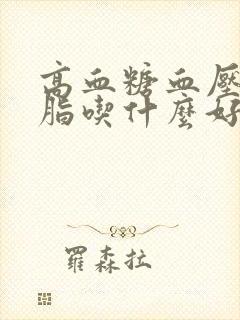 高血糖血壓
脂喫什麼好
羅森拉